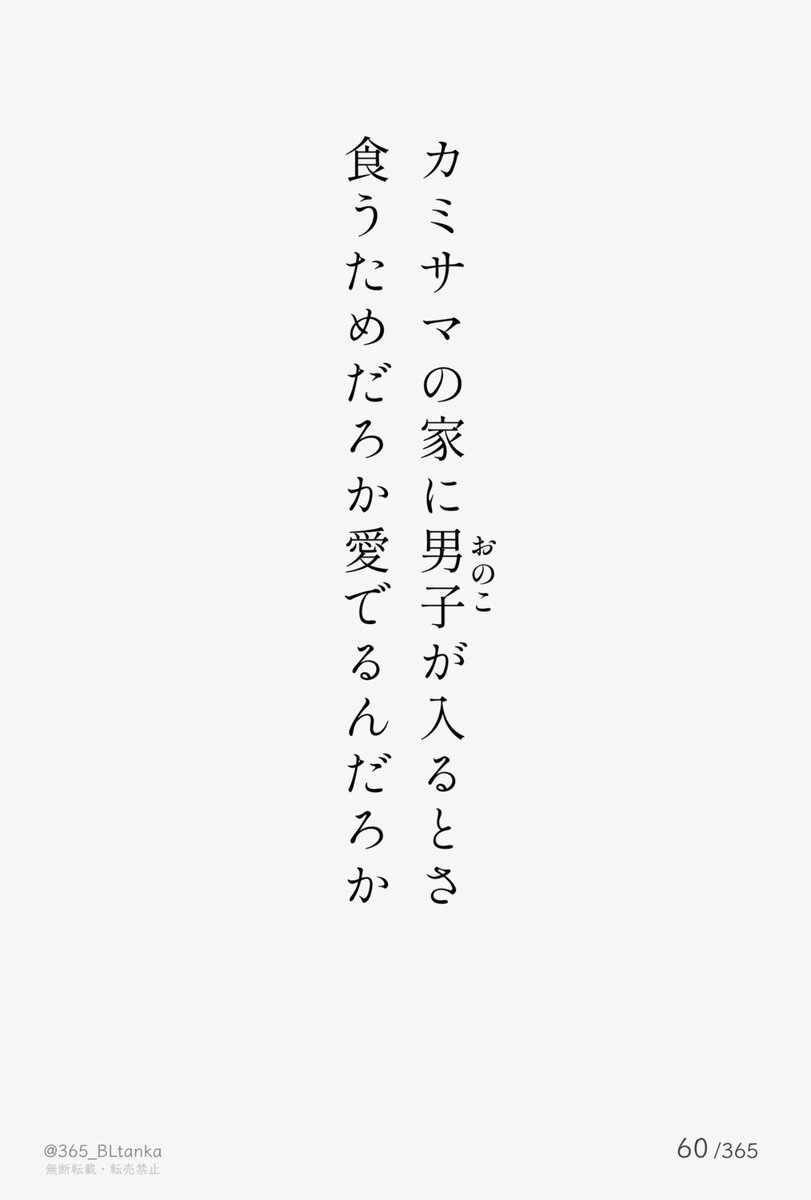 カミサマの家に男子が入るとさ
おのこ
食うためだろか愛でるんだろか
@365_BLtanka
無断転載・転売禁止
60/365